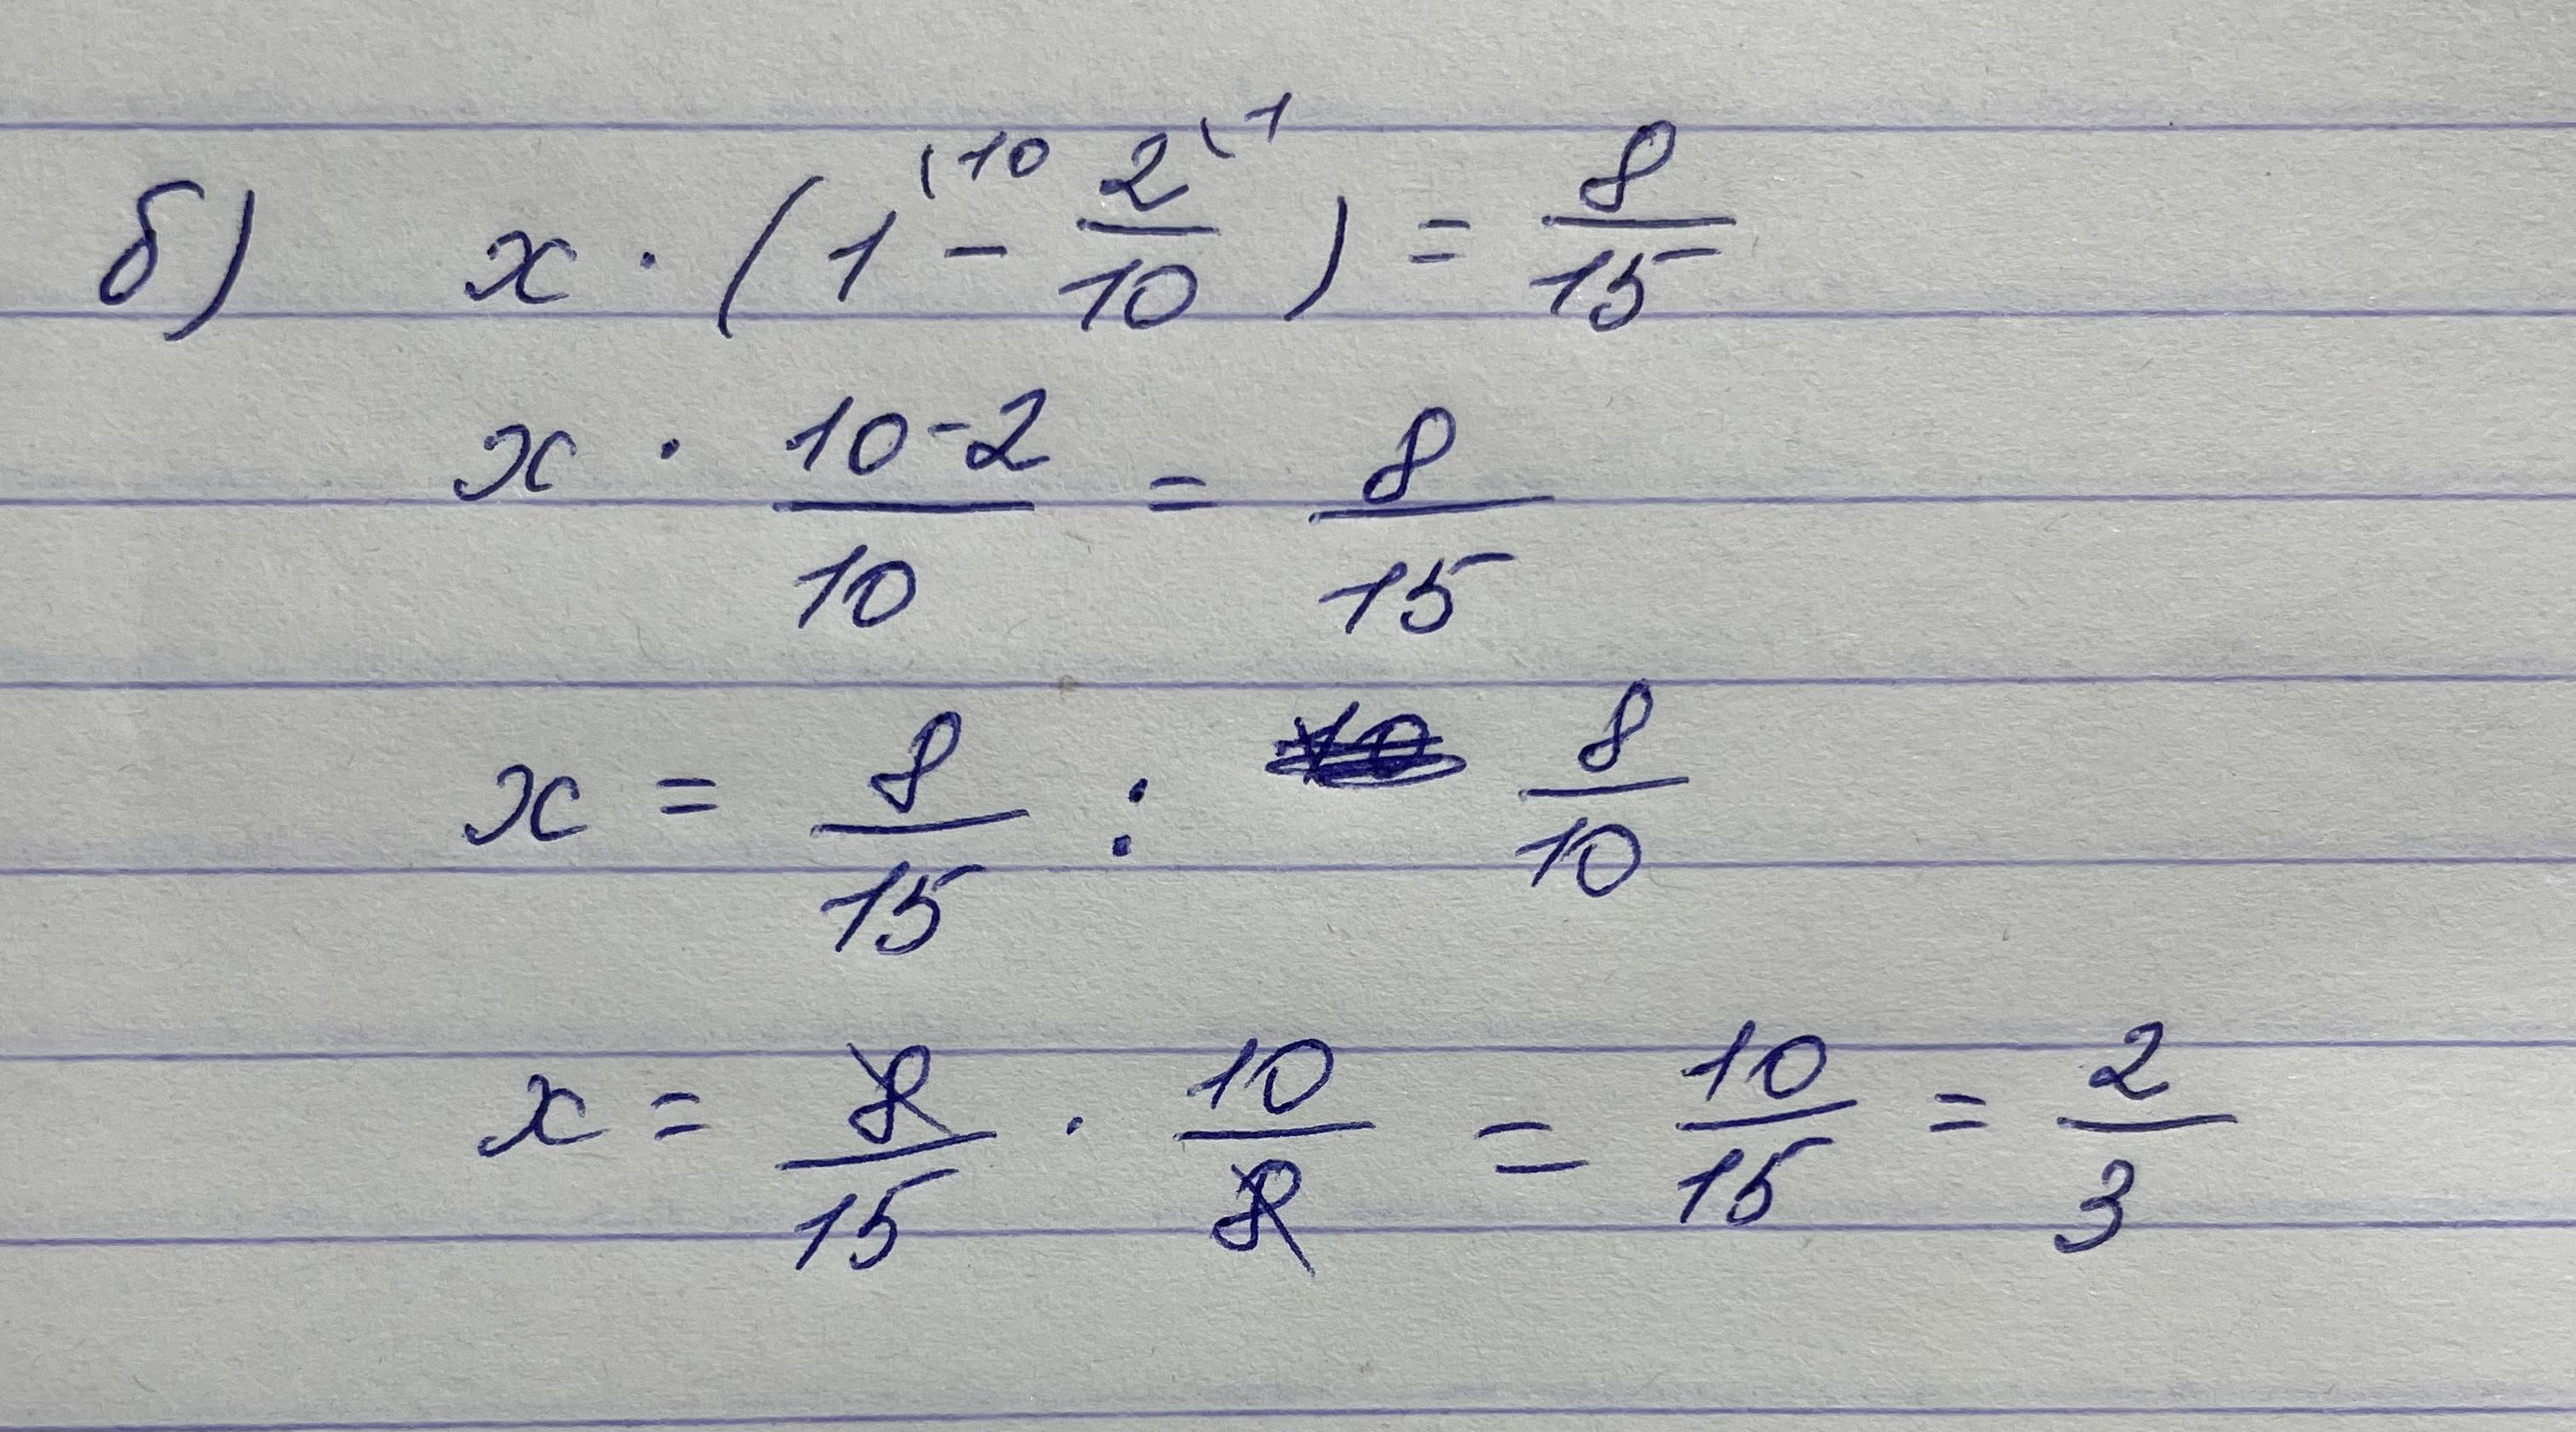 б) x · (1⁽¹⁰ - 2⁽¹/10) = 8/15
x · 10-2/10 = 8/15
x = 8/15 : 8/10
x = 8/15 · 10/8 = 10/15 = 2/3